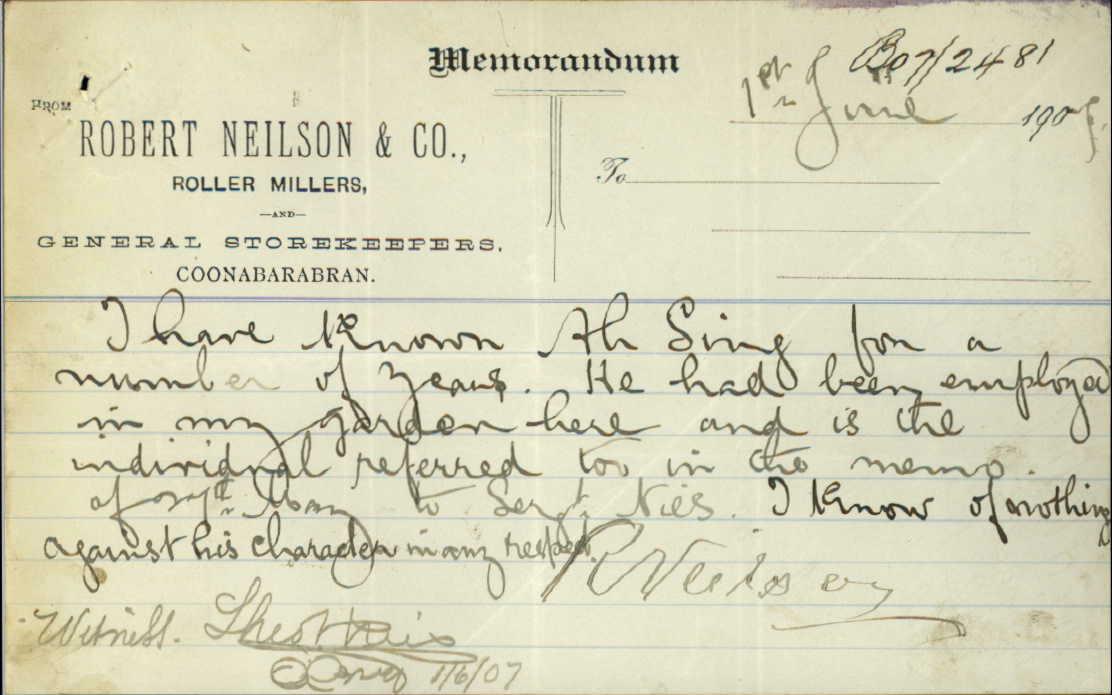 Memorandum
B07/2481
1st June 1907.
FROM
ROBERT NEILSON & CO.,
ROLLER MILLERS,
—AND—
GENERAL STOREKEEPERS,
COONABARABRAN.
To
I have known Ah Sing for a
number of years. He had been employed
in my garden here and is the
individual referred too in the memo.
of May to Sergt. Nies. I know of nothing
against his character in any respect.
R Neilson
Witness.
1/6/07